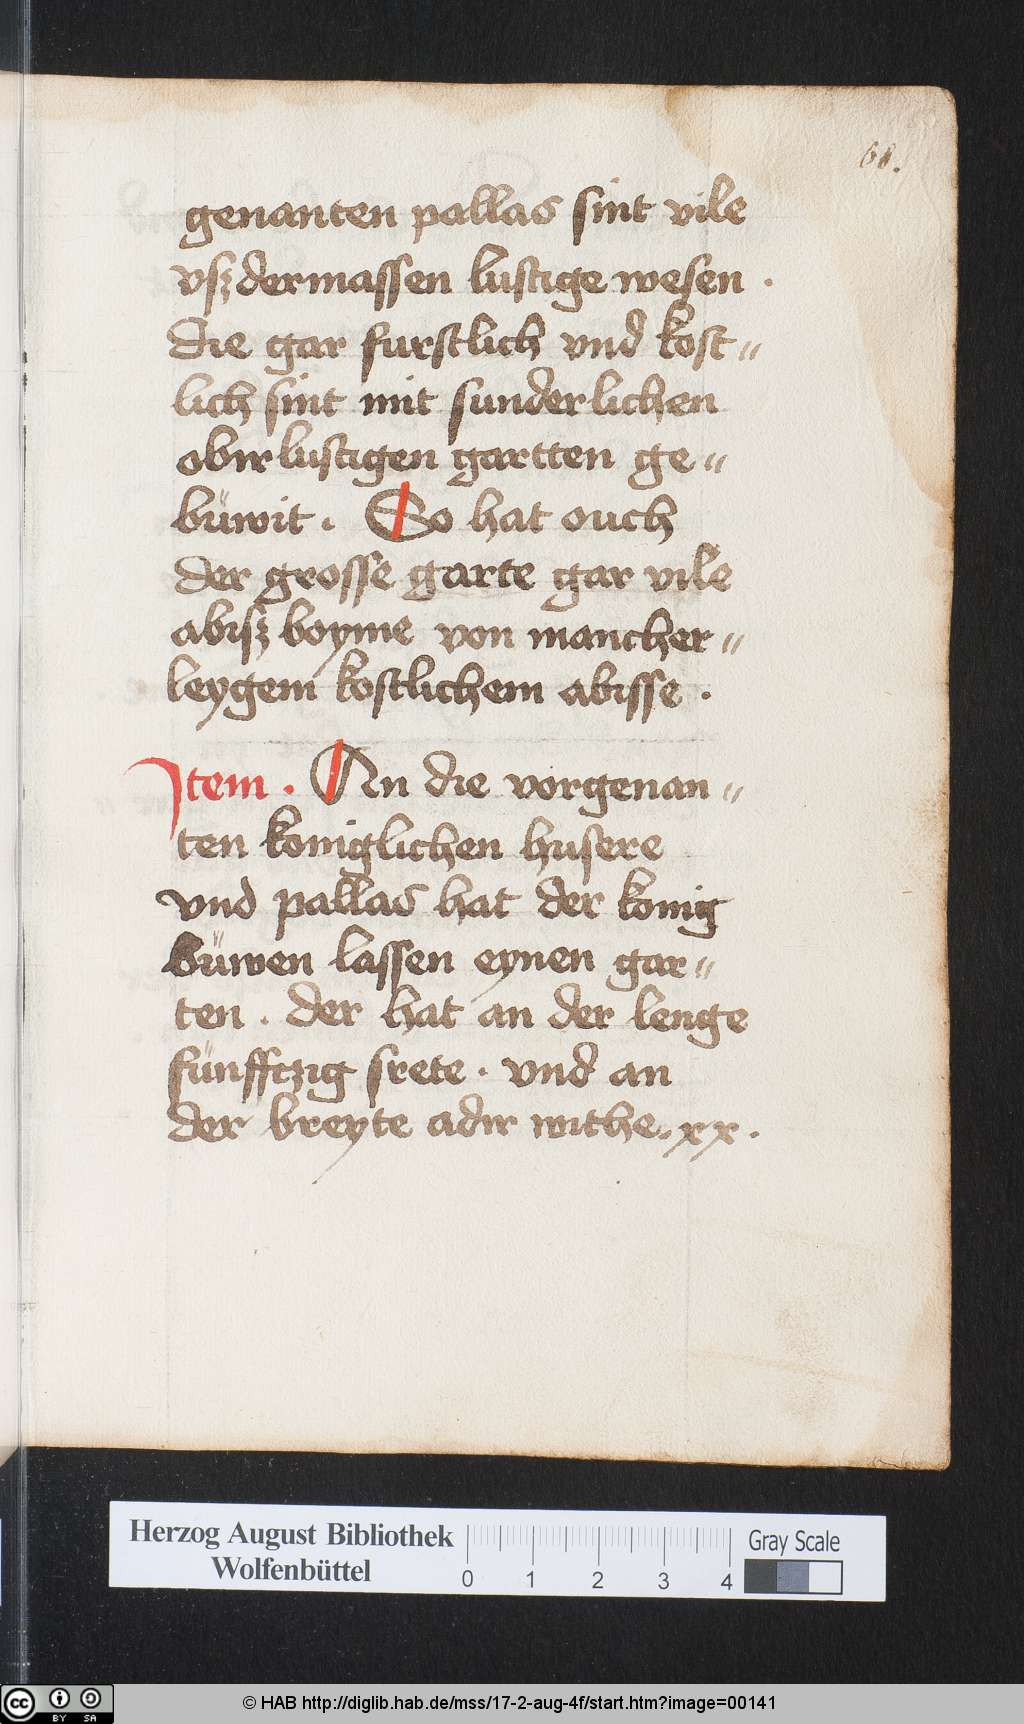 68.
genanten pallas sint vile
vsz dermassen lustige wesen .
die gar furstlich vnd kost„
lich sint mit sunderlichen
obir lustigen gartten ge„
büwit . So hat ouch
der grosse garte gar vile
abisz boyme von mancher„
leygem kostlichem abisse .
Item . An die vorgenan„
ten koniglichen husere
vnd pallas hat der konig
büwen lassen eynen gar„
ten . der hat an der lenge
fünfftzig srete . vnd an
der breyte adir withe . xx .
Herzog August Bibliothek
Wolfenbüttel
0 1 2 3 4
Gray Scale
cc BY SA
© HAB http://diglib.hab.de/mss/17-2-aug-4f/start.htm?image=00141